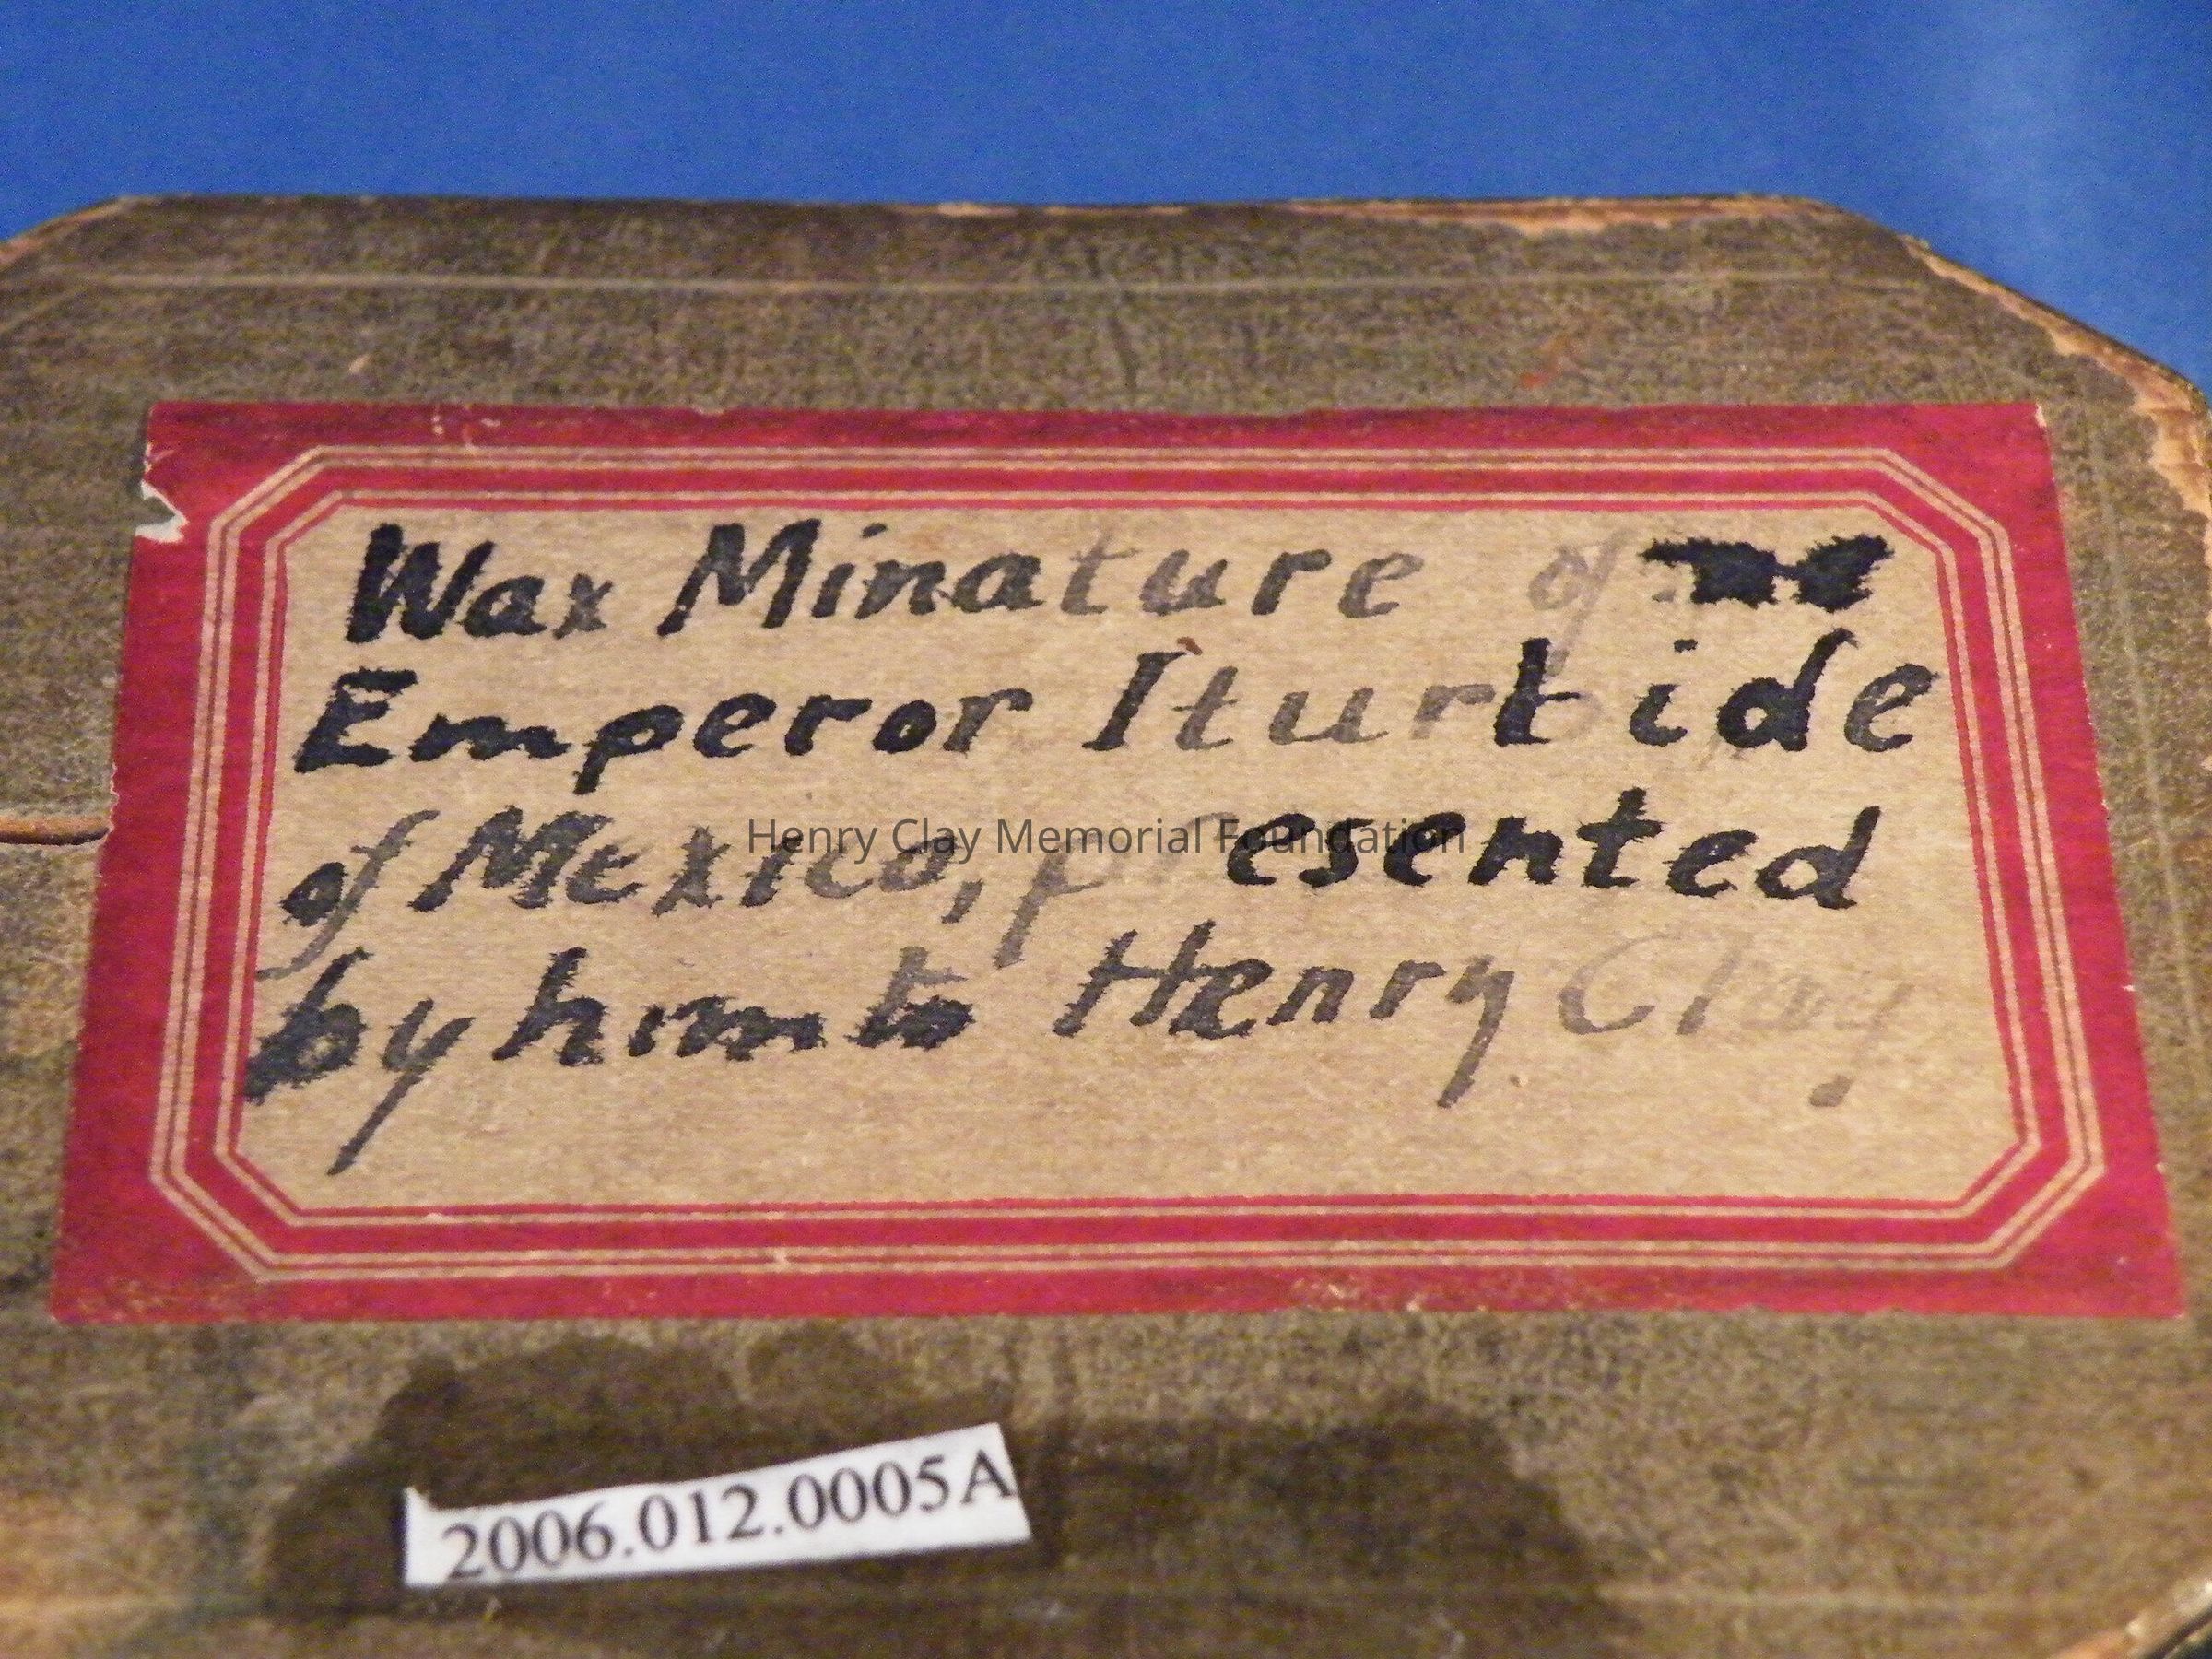 Wax Minature of
Emperor Iturbide
of Mexico, presented
by him to Henry Clay
Henry Clay Memorial Foundation
2006.012.0005A